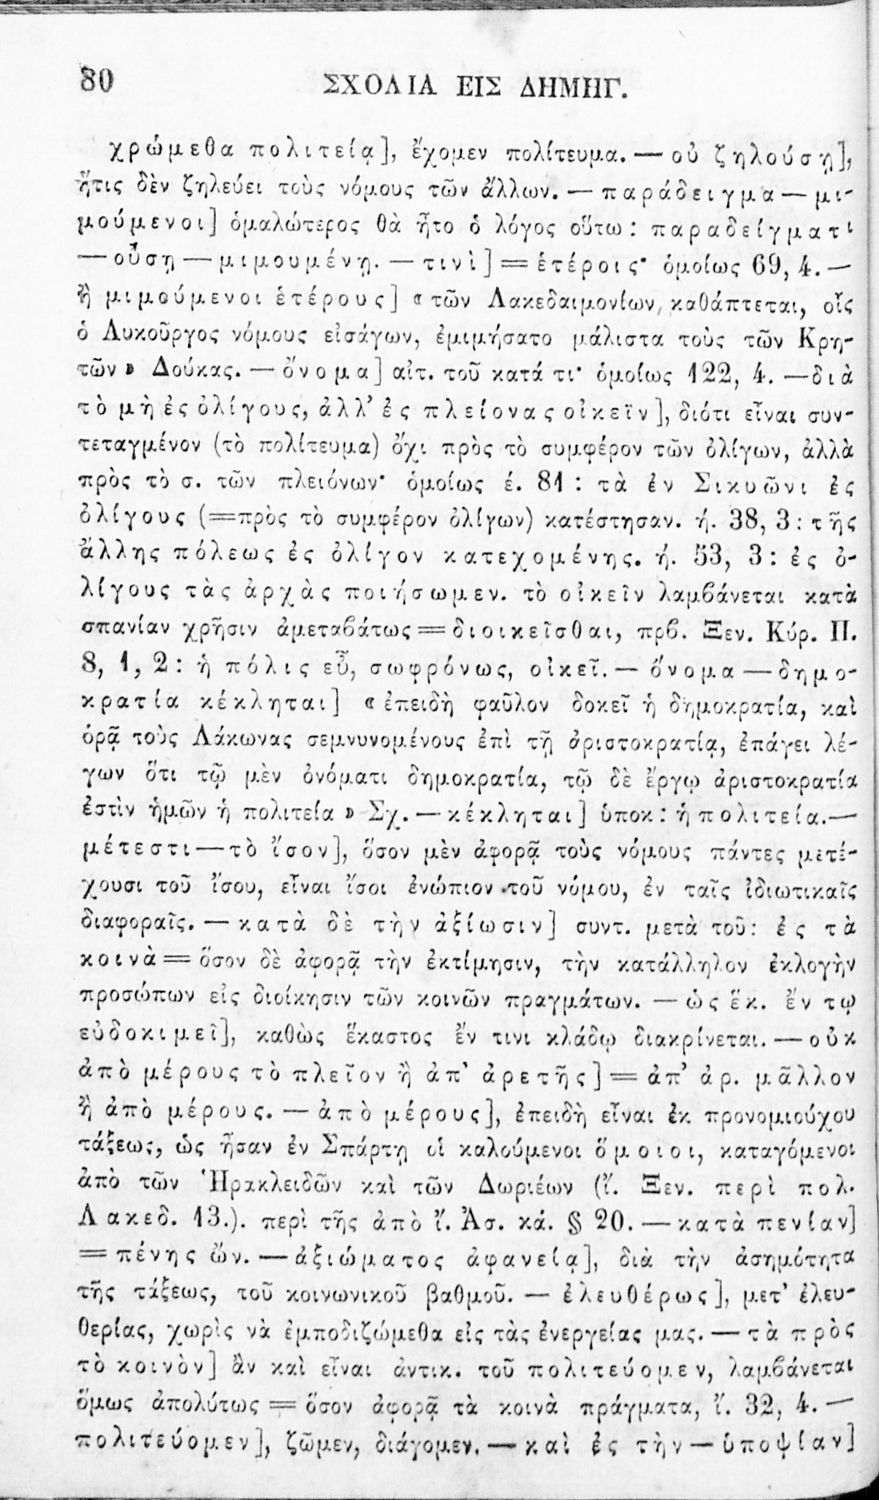 80 ΣΧΟΛΙΑ ΕΙΣ ΔΗΜΗΓ.
χρώμεθα πολιτείᾳ], ἔχομεν πολίτευμα. — οὐ ζηλούσῃ],
ἥτις δὲν ζηλεύει τοὺς νόμους τῶν ἄλλων. — παράδειγμα — μι-
μούμενοι] ὁμαλώτερος θὰ ἦτο ὁ λόγος οὕτω: παραδείγματι
— οὔσῃ — μιμουμένῃ. — τινὶ] = ἑτέροις· ὁμοίως 69, 4. —
ἢ μιμούμενοι ἑτέρους] « τῶν Λακεδαιμονίων, καθάπτεται, οἷς
ὁ Λυκοῦργος νόμους εἰσάγων, ἐμιμήσατο μάλιστα τοὺς τῶν Κρη-
τῶν » Δούκας. — ὄνομα] αἰτ. τοῦ κατά τι· ὁμοίως 122, 4. — διὰ
τὸ μὴ ἐς ὀλίγους, ἀλλ' ἐς πλείονας οἰκεῖν], διότι εἶναι συν-
τεταγμένον (τὸ πολίτευμα) ὄχι πρὸς τὸ συμφέρον τῶν ὀλίγων, ἀλλὰ
πρὸς τὸ σ. τῶν πλειόνων· ὁμοίως έ. 81 : τὰ ἐν Σικυῶνι ἐς
ὀλίγους (=πρὸς τὸ συμφέρον ὀλίγων) κατέστησαν. ή. 38, 3 : τῆς
ἄλλης πόλεως ἐς ὀλίγον κατεχομένης. ή. 53, 3 : ἐς ὀ-
λίγους τὰς ἀρχὰς ποιήσωμεν. τὸ οἰκεῖν λαμβάνεται κατὰ
σπανίαν χρῆσιν ἀμεταβάτως = διοικεῖσθαι, πρβ. Ξεν. Κύρ. Π.
8, 1, 2 : ἡ πόλις εὖ, σωφρόνως, οἰκεῖ. — ὄνομα — δημο-
κρατία κέκληται] « ἐπειδὴ φαῦλον δοκεῖ ἡ δημοκρατία, καὶ
ὁρᾷ τοὺς Λάκωνας σεμνυνομένους ἐπὶ τῇ ἀριστοκρατίᾳ, ἐπάγει λέ-
γων ὅτι τῷ μὲν ὀνόματι δημοκρατία, τῷ δὲ ἔργῳ ἀριστοκρατία
ἐστὶν ἡμῶν ἡ πολιτεία » Σχ. — κέκληται] ὑποκ : ἡ πολιτεία. —
μέτεστι — τὸ ἴσον], ὅσον μὲν ἀφορᾷ τοὺς νόμους πάντες μετέ-
χουσι τοῦ ἴσου, εἶναι ἴσοι ἐνώπιον τοῦ νόμου, ἐν ταῖς ἰδιωτικαῖς
διαφοραῖς. — κατὰ δὲ τὴν ἀξίωσιν] συντ. μετὰ τοῦ: ἐς τὰ
κοινὰ = ὅσον δὲ ἀφορᾷ τὴν ἐκτίμησιν, τὴν κατάλληλον ἐκλογὴν
προσώπων εἰς διοίκησιν τῶν κοινῶν πραγμάτων. — ὡς ἕκ. ἔν τῳ
εὐδοκιμεῖ], καθὼς ἕκαστος ἔν τινι κλάδῳ διακρίνεται. — οὐκ
ἀπὸ μέρους τὸ πλεῖον ἢ ἀπ' ἀρετῆς] = ἀπ' ἀρ. μᾶλλον
ἢ ἀπὸ μέρους. — ἀπὸ μέρους], ἐπειδὴ εἶναι ἐκ προνομιούχου
τάξεως, ὡς ἦσαν ἐν Σπάρτῃ οἱ καλούμενοι ὅμοιοι, καταγόμενοι
ἀπὸ τῶν Ἡρακλειδῶν καὶ τῶν Δωριέων (ἴ. Ξεν. περὶ πολ.
Λακεδ. 13.). περὶ τῆς ἀπὸ ἴ. Ἀσ. κά. § 20. — κατὰ πενίαν]
= πένης ὤν. — ἀξιώματος ἀφανείᾳ], διὰ τὴν ἀσημότητα
τῆς τάξεως, τοῦ κοινωνικοῦ βαθμοῦ. — ἐλευθέρως], μετ' ἐλευ-
θερίας, χωρὶς νὰ ἐμποδιζώμεθα εἰς τὰς ἐνεργείας μας. — τὰ πρὸς
τὸ κοινὸν] ἂν καὶ εἶναι ἀντικ. τοῦ πολιτεύομεν, λαμβάνεται
ὅμως ἀπολύτως = ὅσον ἀφορᾷ τὰ κοινὰ πράγματα, ἴ. 32, 4. —
πολιτεύομεν], ζῶμεν, διάγομεν. — καὶ ἐς τὴν — ὑποψίαν]